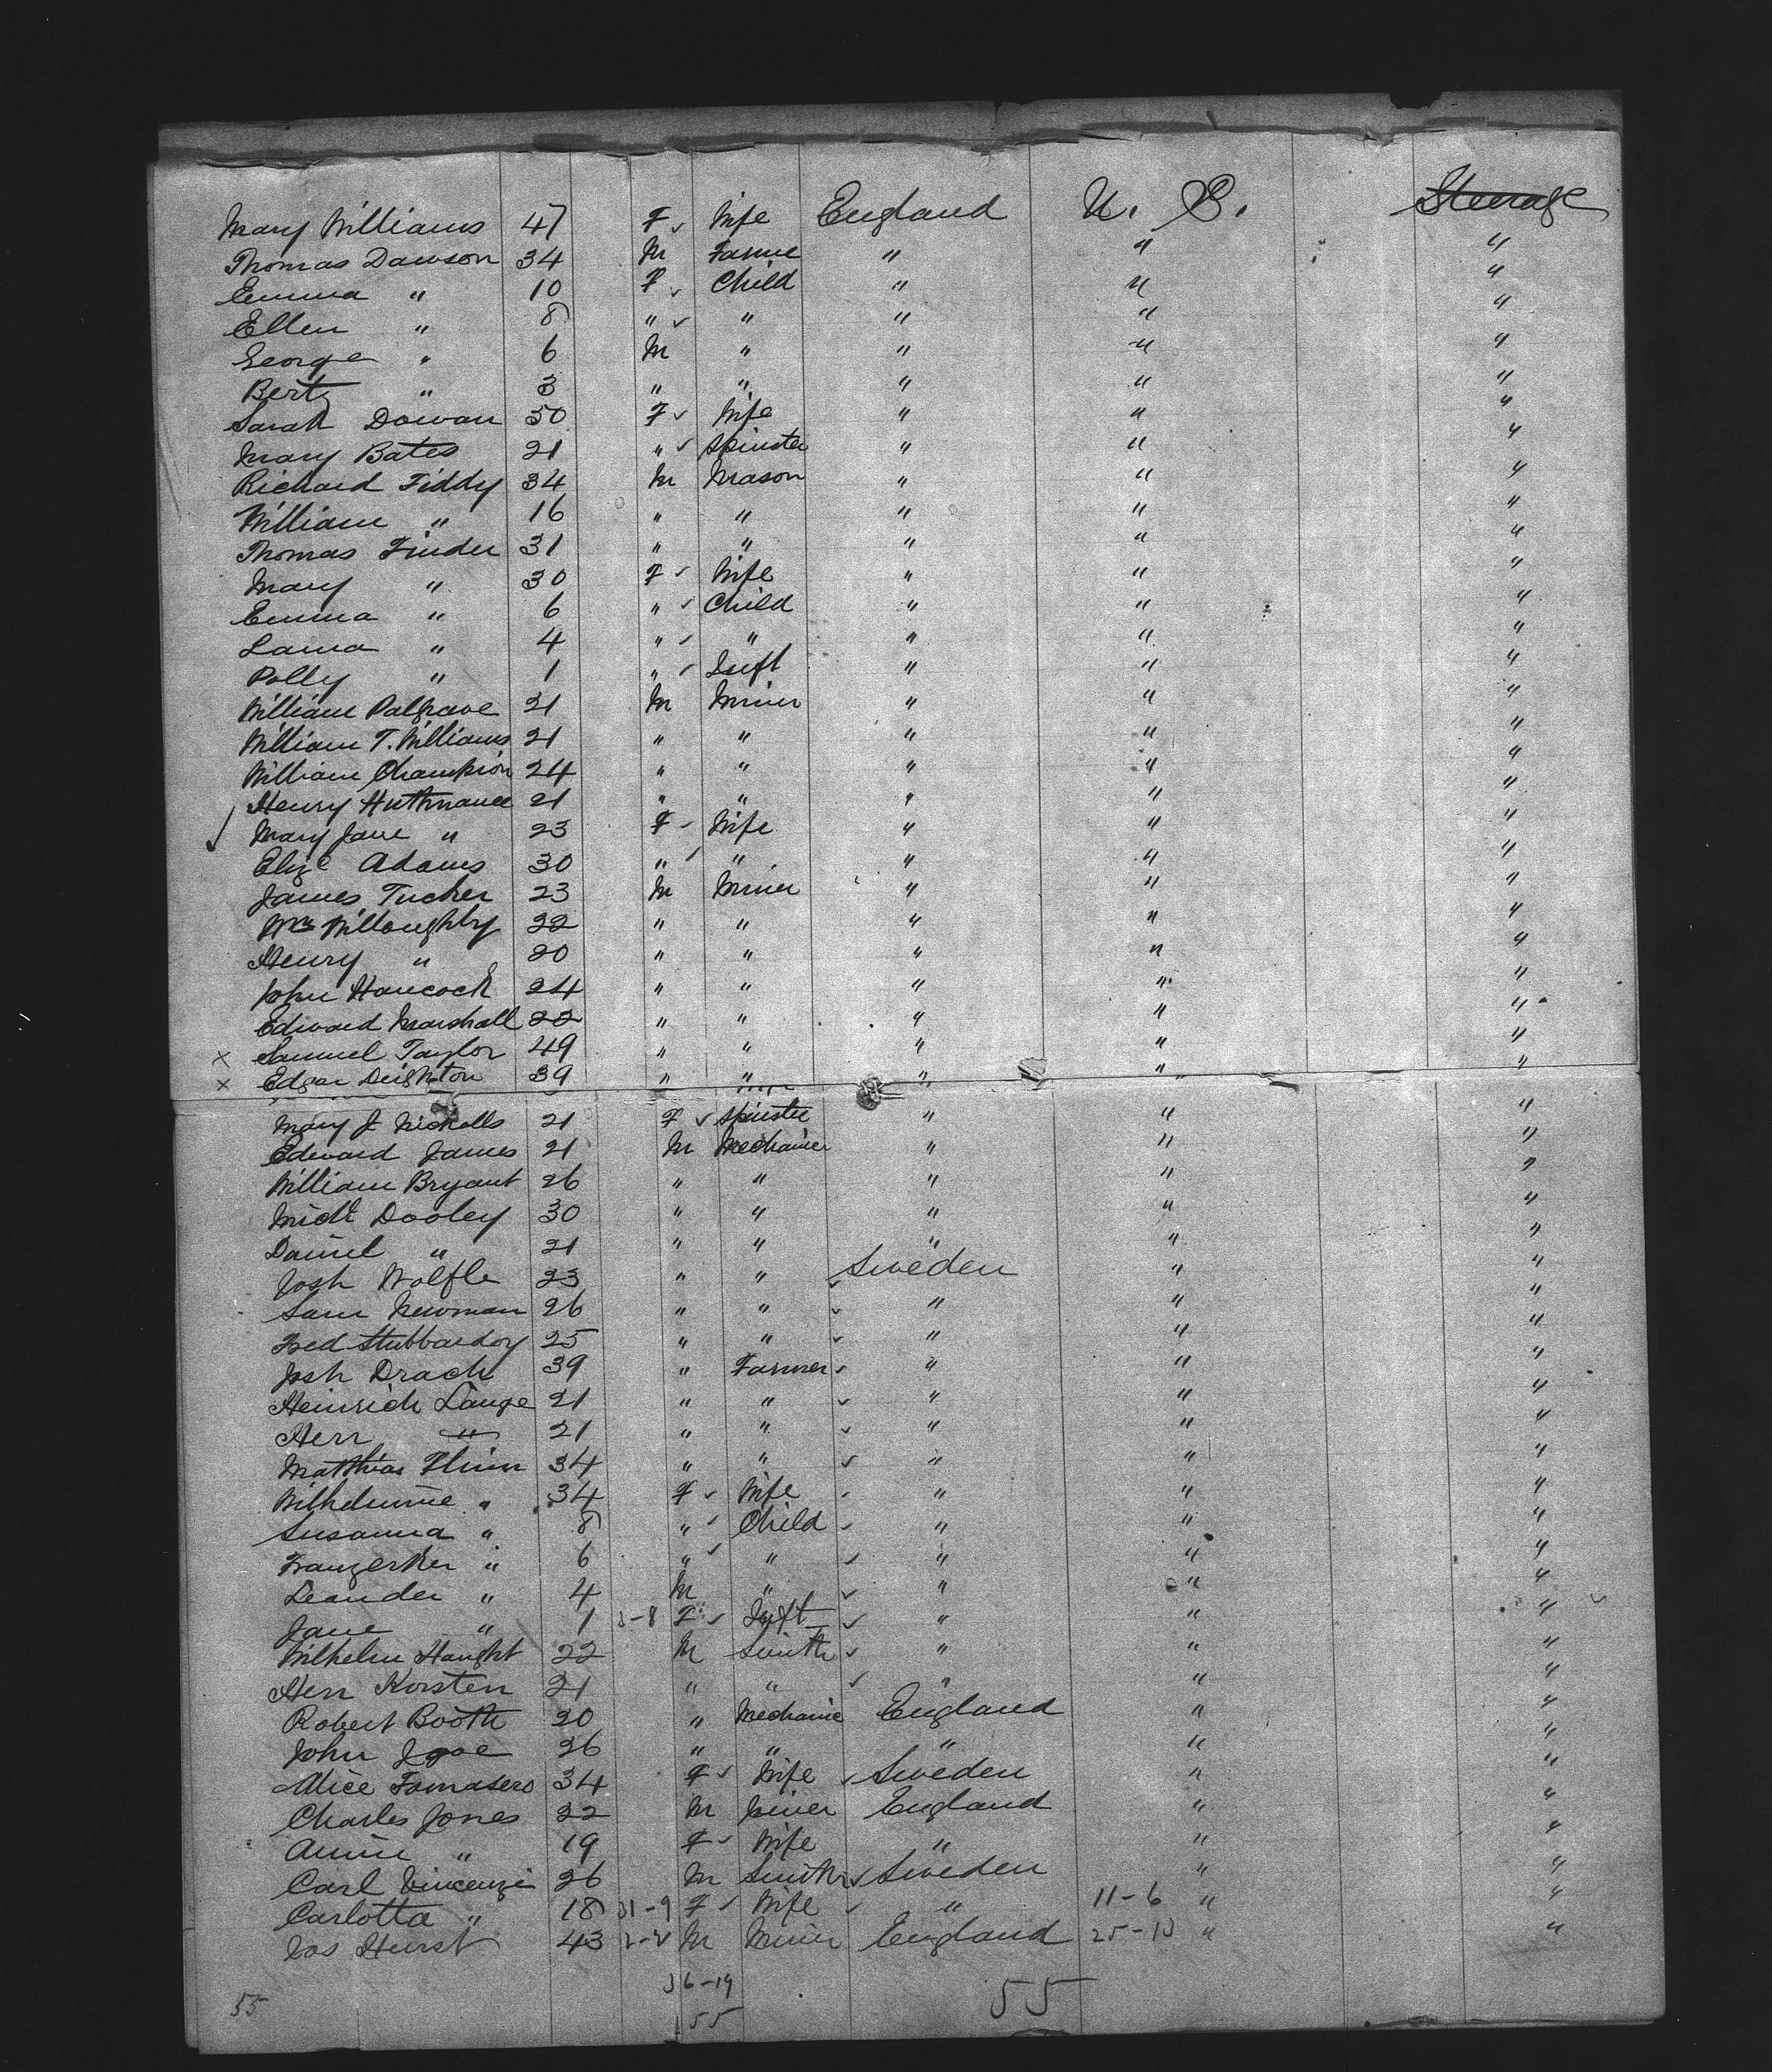 Mary Williams 47 F Wife England U. S. Steerage
Thomas Dawson 34 M Farme " " "
Emma " 10 F Child " " "
Ellen " 8 " " " " "
George " 6 M " " " "
Bert " 3 " " " " "
Sarah Dowan 50 F Wife " " "
Mary Bates 21 " Spinster " " "
Richard Tiddy 34 M Mason " " "
William " 16 " " " " "
Thomas Finder 31 " " " " "
Mary " 30 F Wife " " "
Emma " 6 " Child " " "
Laura " 4 " " " " "
Polly " 1 " Inft " " "
William Palgrave 21 M Miner " " "
William T. Williams 21 " " " " "
William Champion 24 " " " " "
Henry Huthnance 21 " " " " "
Mary Jane " 23 F Wife " " "
Elizᵉ Adams 30 " " " " "
James Tucker 23 M Miner " " "
Wm Willoughby 22 " " " " "
Henry " 20 " " " " "
John Hancock 24 " " " " "
Edward Marshall 22 " " " " "
x Samuel Taylor 49 " " " " "
x Edgar Deighton 39 " " " " "
Mary J Nicholls 21 F Spinster " " "
Edward James 21 M Mechanic " " "
William Bryant 26 " " " " "
Michl Dooley 30 " " " " "
Daniel " 21 " " " " "
Josh Wolfle 23 " " Sweden " "
Sam Newman 26 " " " " "
Fred Stubbardoy 25 " " " " "
Josh Drach 39 " Farmer " " "
Heinrich Lange 21 " " " " "
Herr " 21 " " " " "
Matthias Flinn 34 " " " " "
Wilhelmine " 34 F Wife " " "
Susanna " 8 " Child " " "
" 6 " " " " "
Leander " 4 M " " " "
Jane " 1 3-8 F Inft " " "
Wilhelm Haught 22 M Smith " " "
Herr Korsten 21 " " " " "
Robert Booth 20 " Mechanic England " "
John 26 " " " " "
Alice Tomasero 34 F Wife Sweden " "
Charles Jones 22 M Miner England " "
Annie " 19 F Wife " " "
Carl Vincenzi 26 M Smith Sweden " "
Carlotta " 18 31-9 F Wife " 11-6 " "
Jos Hurst 43 2-2 M Miner England 25-13 " "
36-19
55 55 55